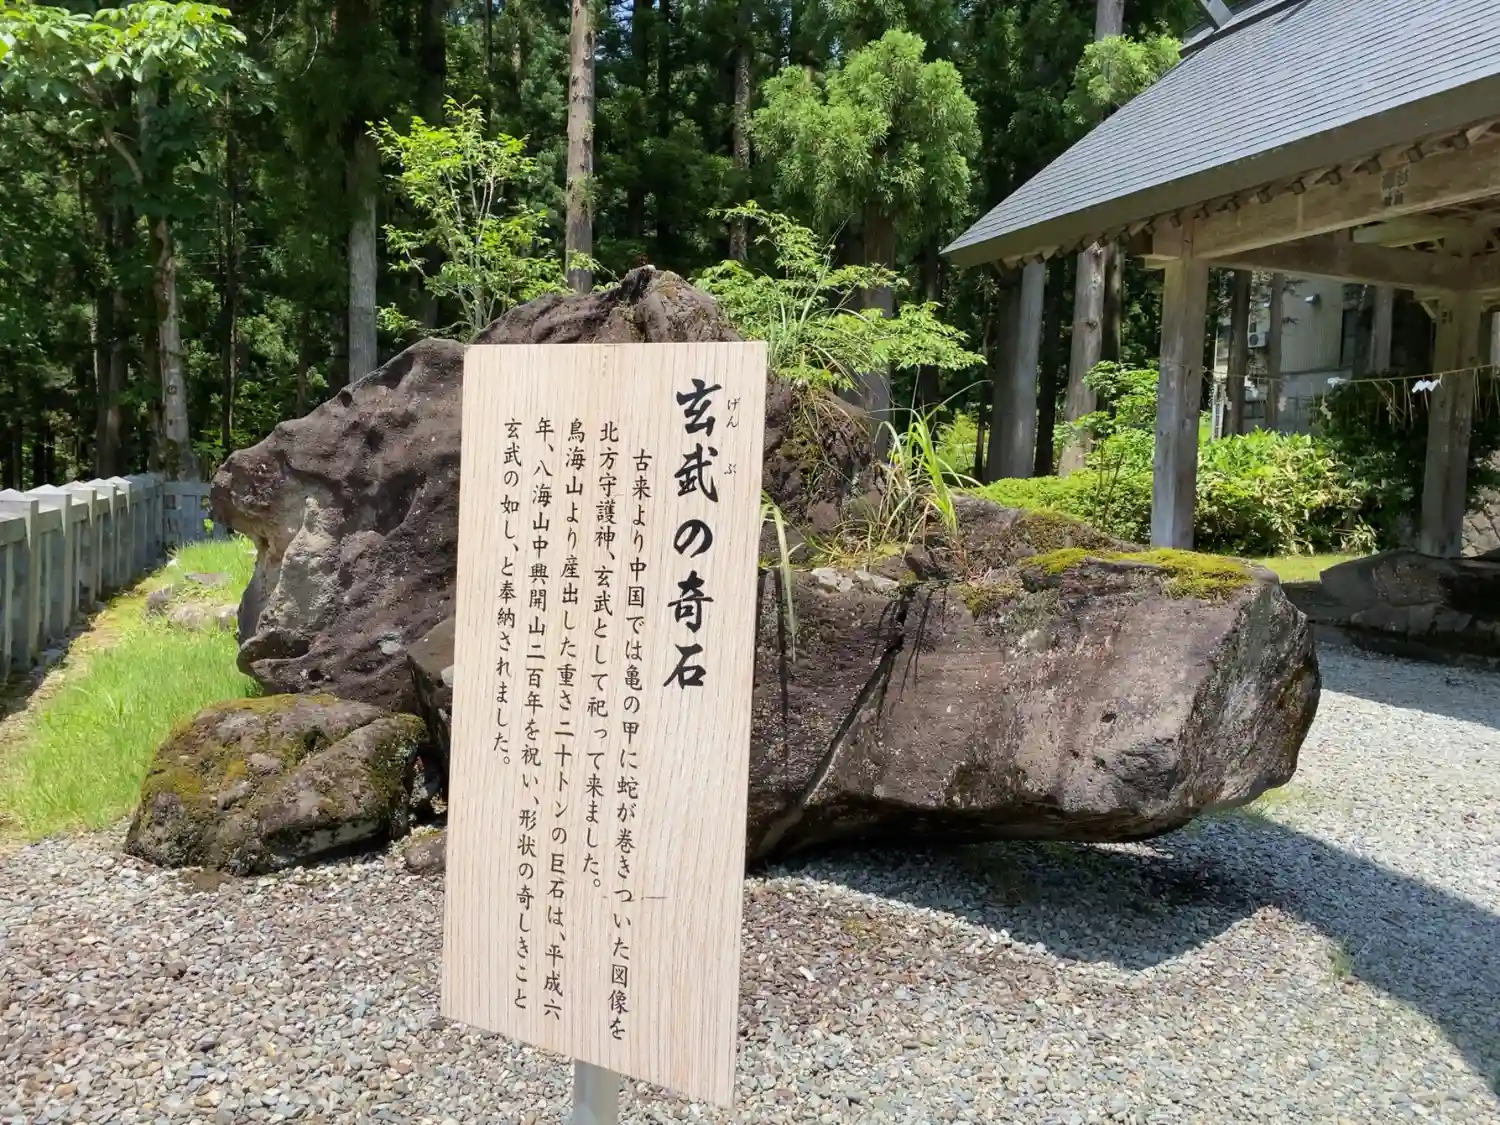 玄武の奇石
げんぶ
古来より中国では亀の甲に蛇が巻きついた図像を
北方守護神、玄武として祀って来ました。
鳥海山より産出した重さ二十トンの巨石は、平成六
年、八海山中興開山二百年を祝い、形状の奇しきこと
玄武の如し、と奉納されました。